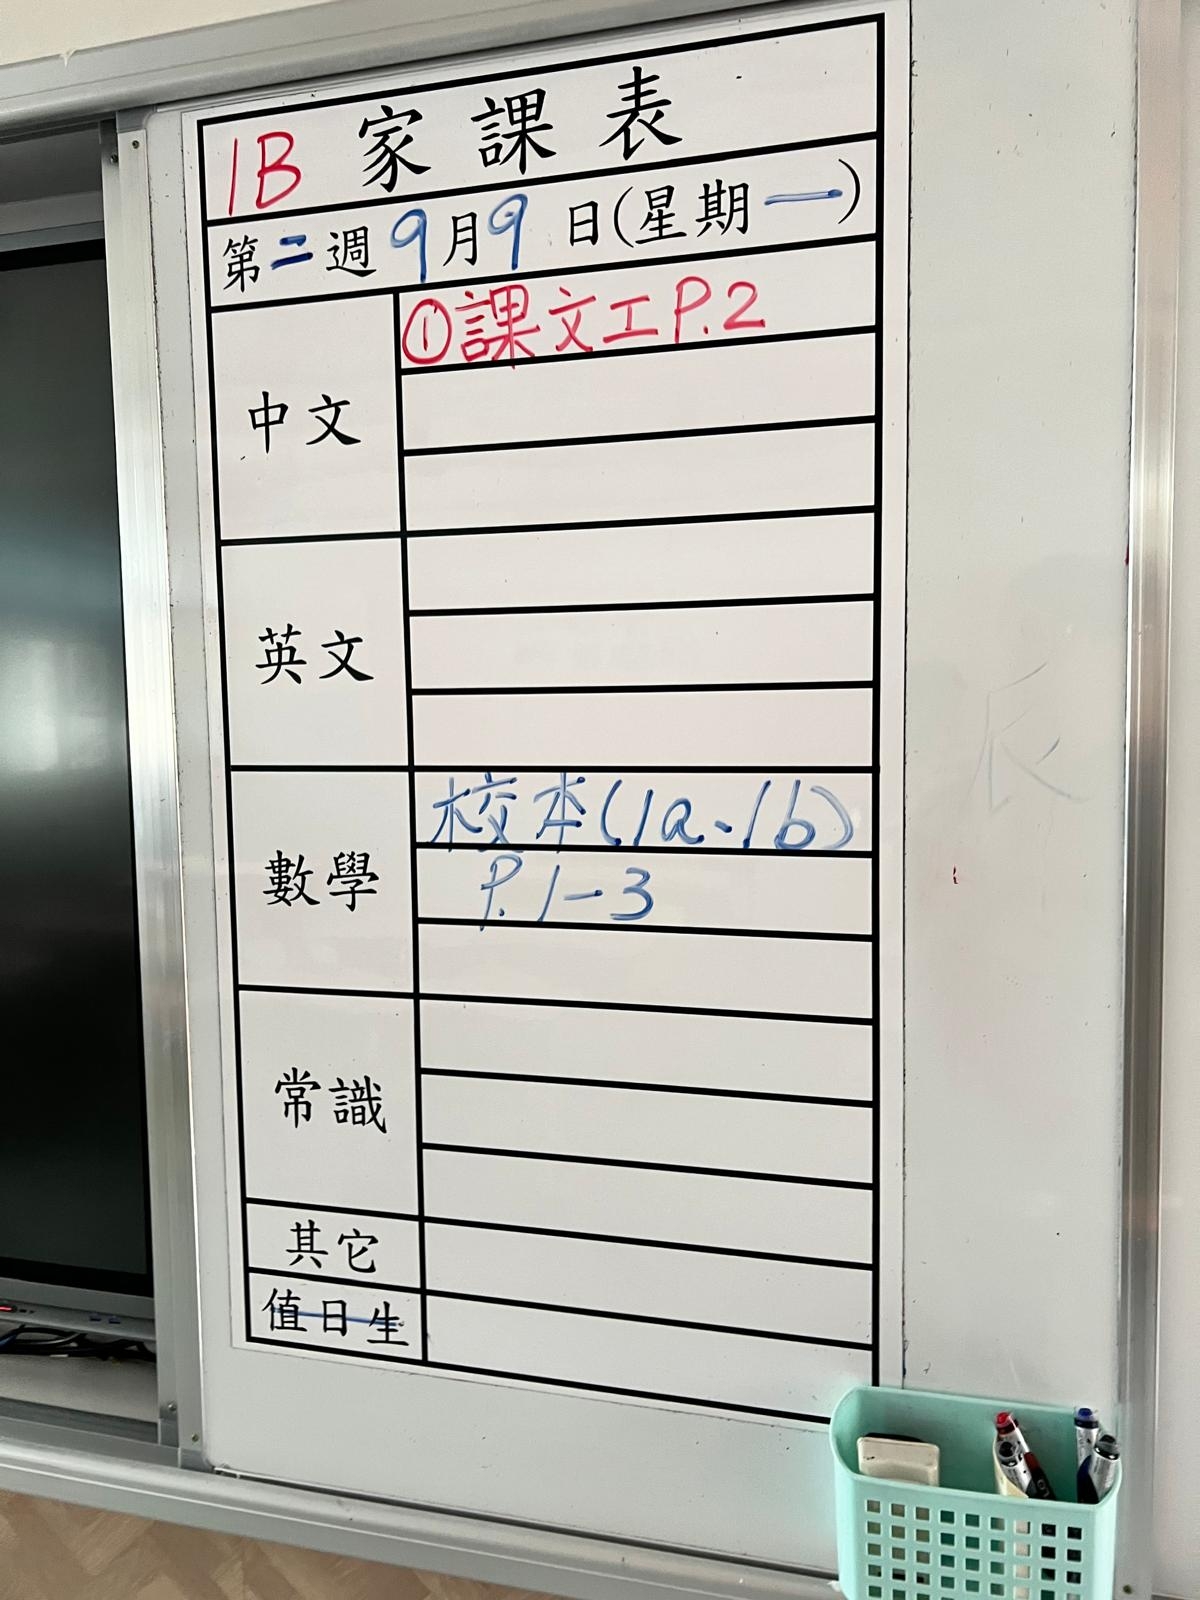 1B 家課表
第二週 9月9日(星期一)
中文
①課文工P.2
英文
數學
校本(1a、1b)
P.1-3
常識
其它
值日生